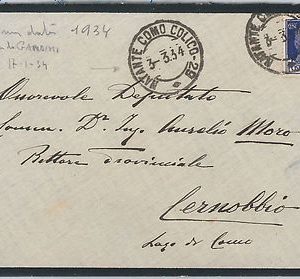 1934
17-1-34
NATANTE COMO COLICO * 29
3-3.34
NATANTE COMO
3-3.34
Onorevole Deputato
Dr. Ing. Aurelio Moro
Rettore provinciale
Cernobbio
Lago di Como